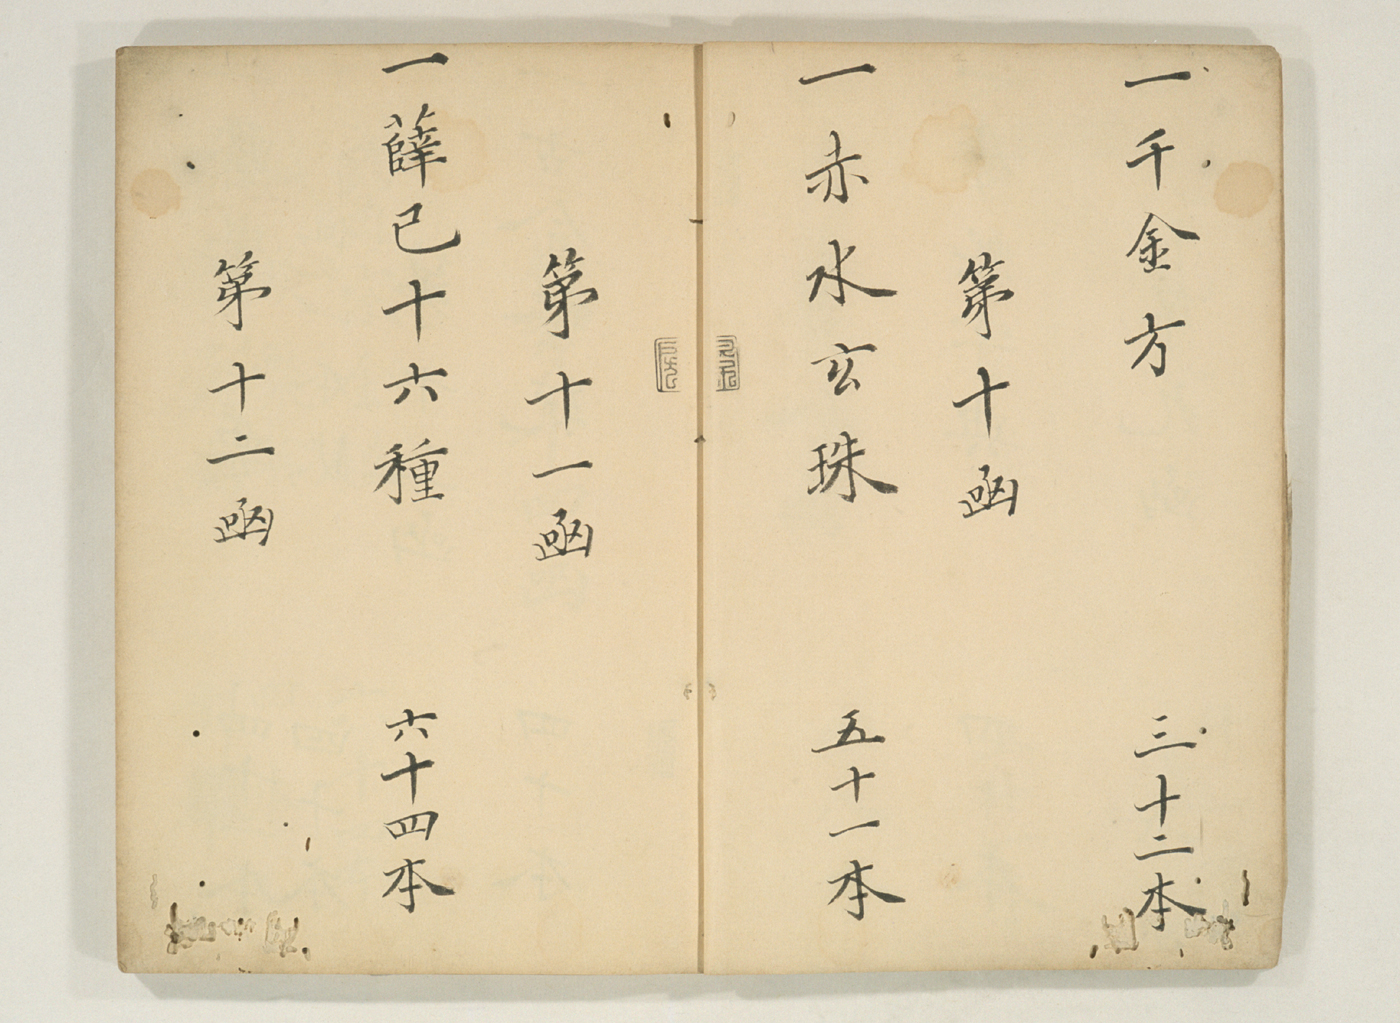 一千金方　三十二本
第十函
一赤水玄珠　五十一本
第十一函
一薛己十六種　六十四本
第十二函